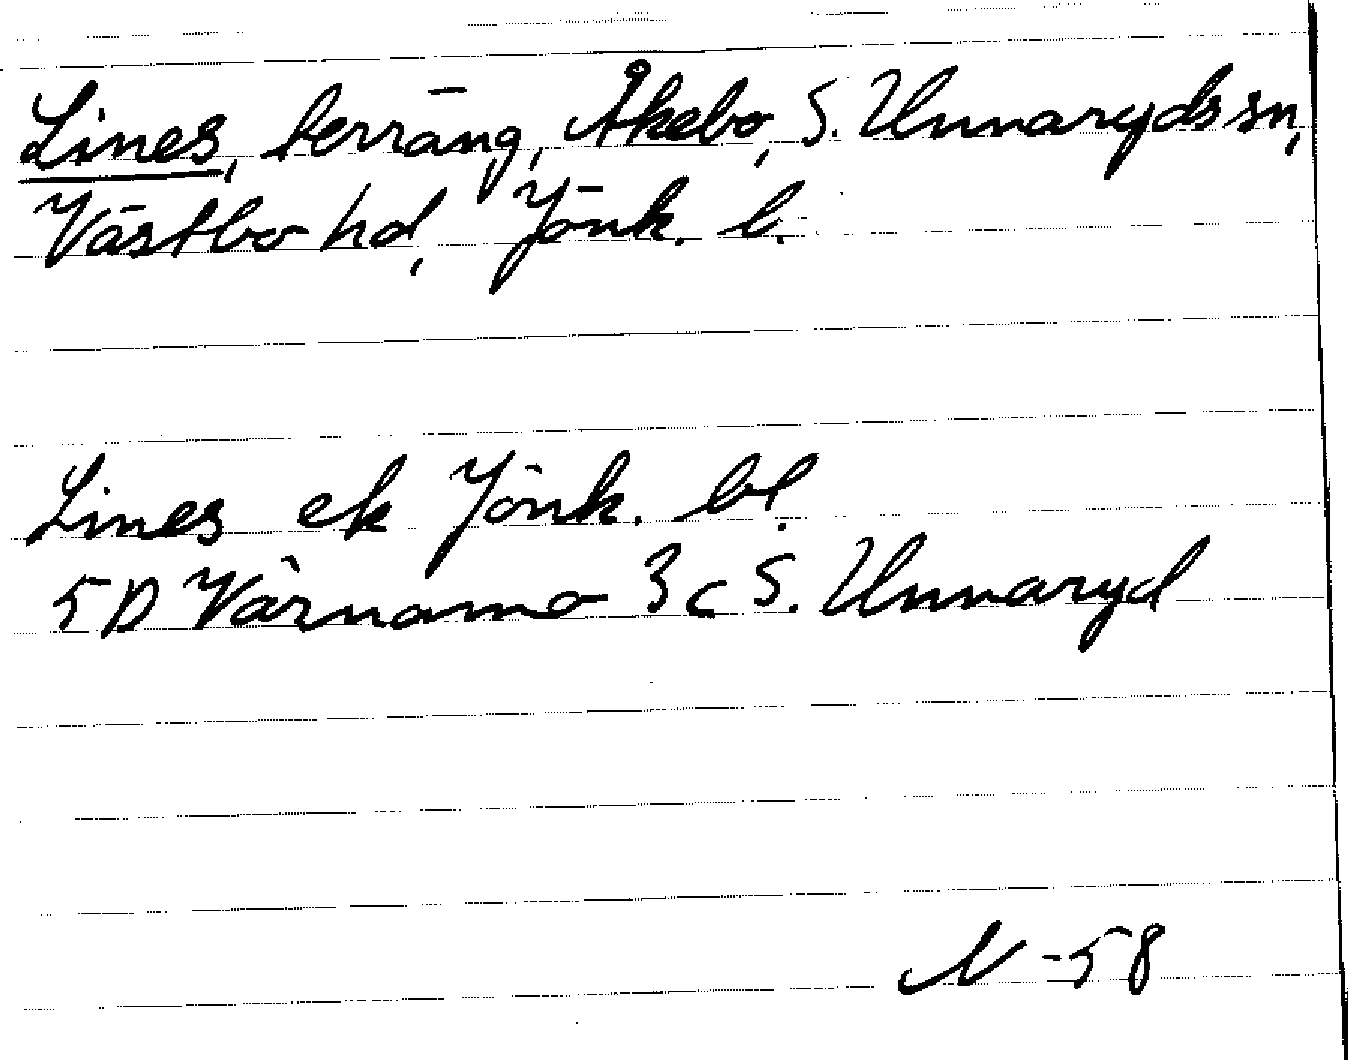 Lines, terräng, Åkebo, S. Unnaryds sn,
Västbo hd, Jönk. l.
Lines ek Jönk. bl.
5D Värnamo 3c S. Unnaryd
N -58